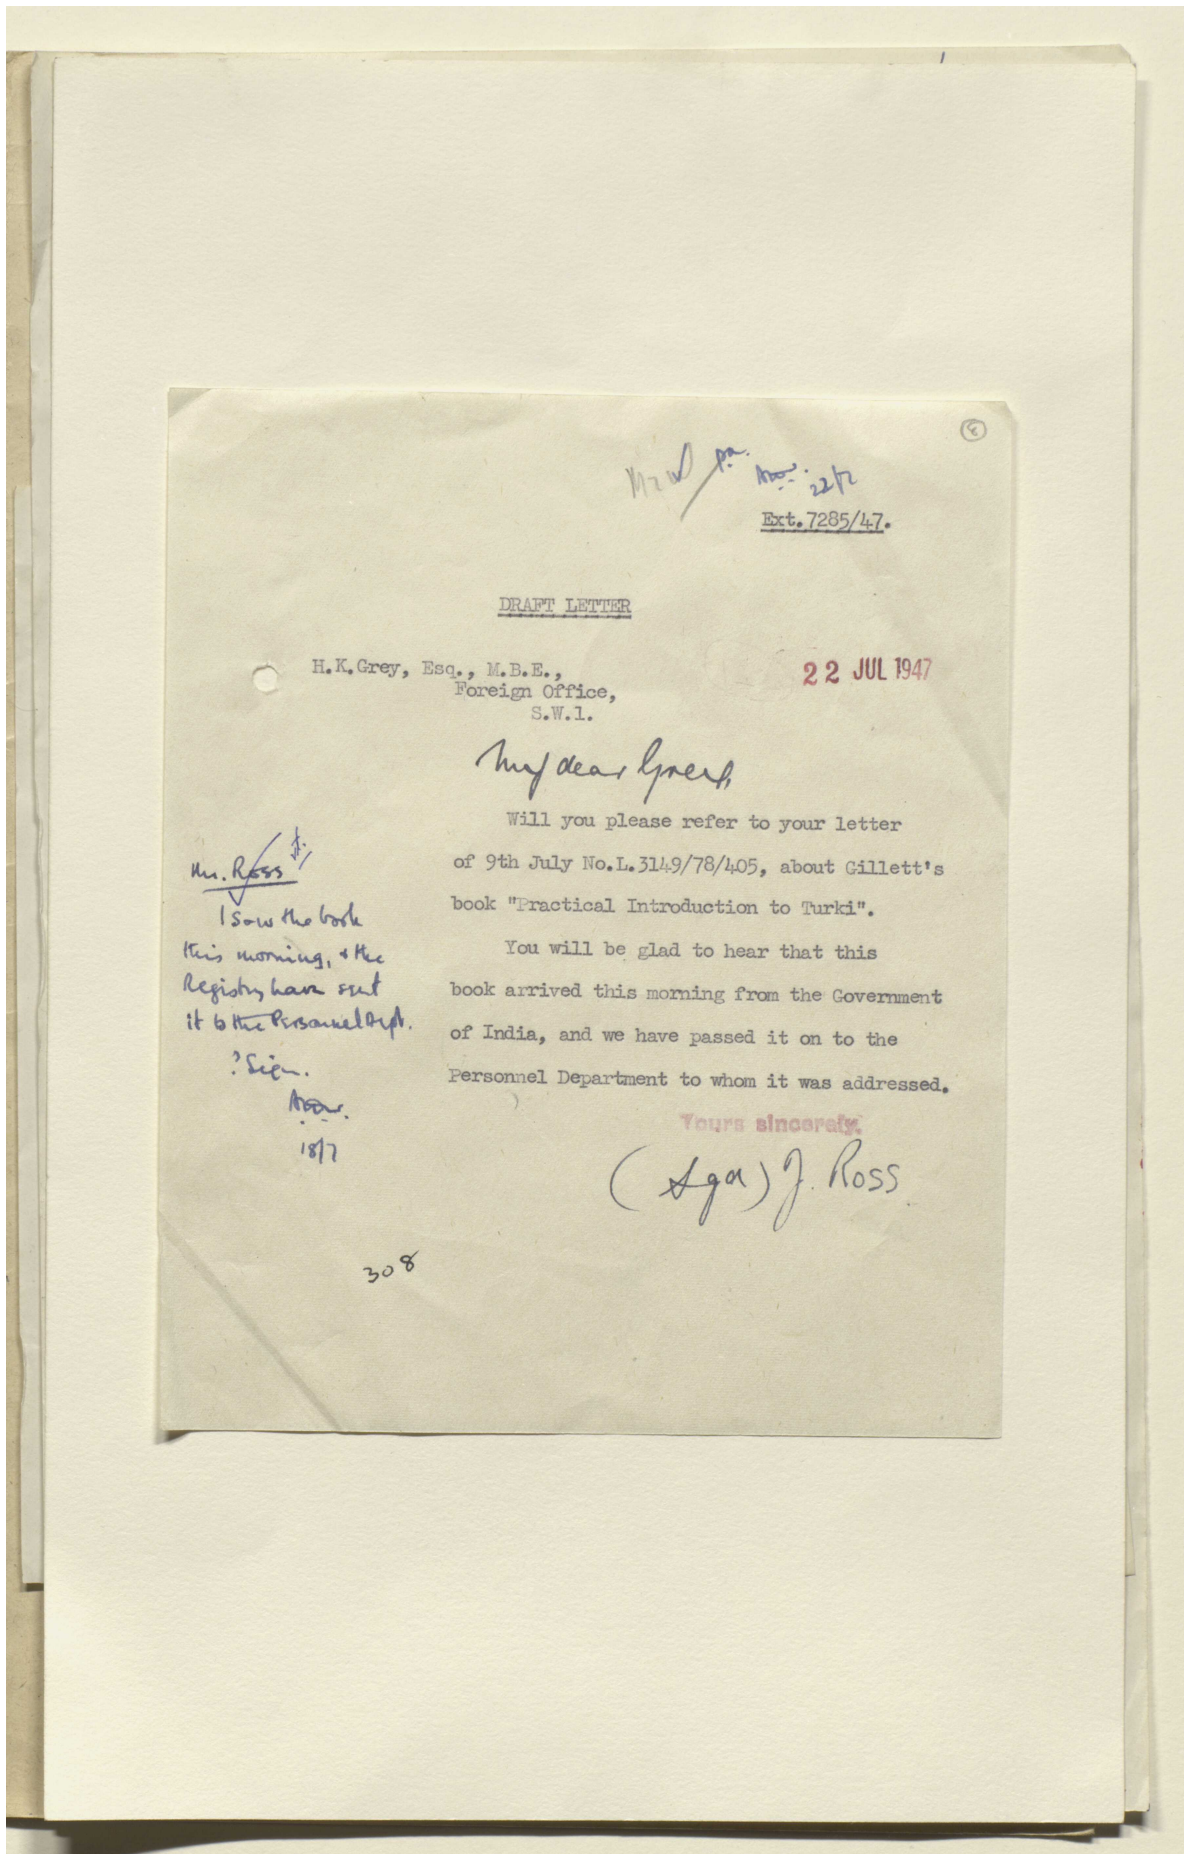 8
pa.
22/7
Ext.7285/47.
DRAFT LETTER
H.K.Grey, Esq., M.B.E.,
Foreign Office,
S.W.1.
22 JUL 1947
My dear Grey,
Will you please refer to your letter
of 9th July No.L.3149/78/405, about Gillett's
book "Practical Introduction to Turki".
You will be glad to hear that this
book arrived this morning from the Government
of India, and we have passed it on to the
Personnel Department to whom it was addressed.
Yours sincerely,
(Sgd) J. Ross
Mr. Ross
I saw the book
this morning, & the
Registry have sent
it to the Personnel Dept.
? Sign.
18/7
308